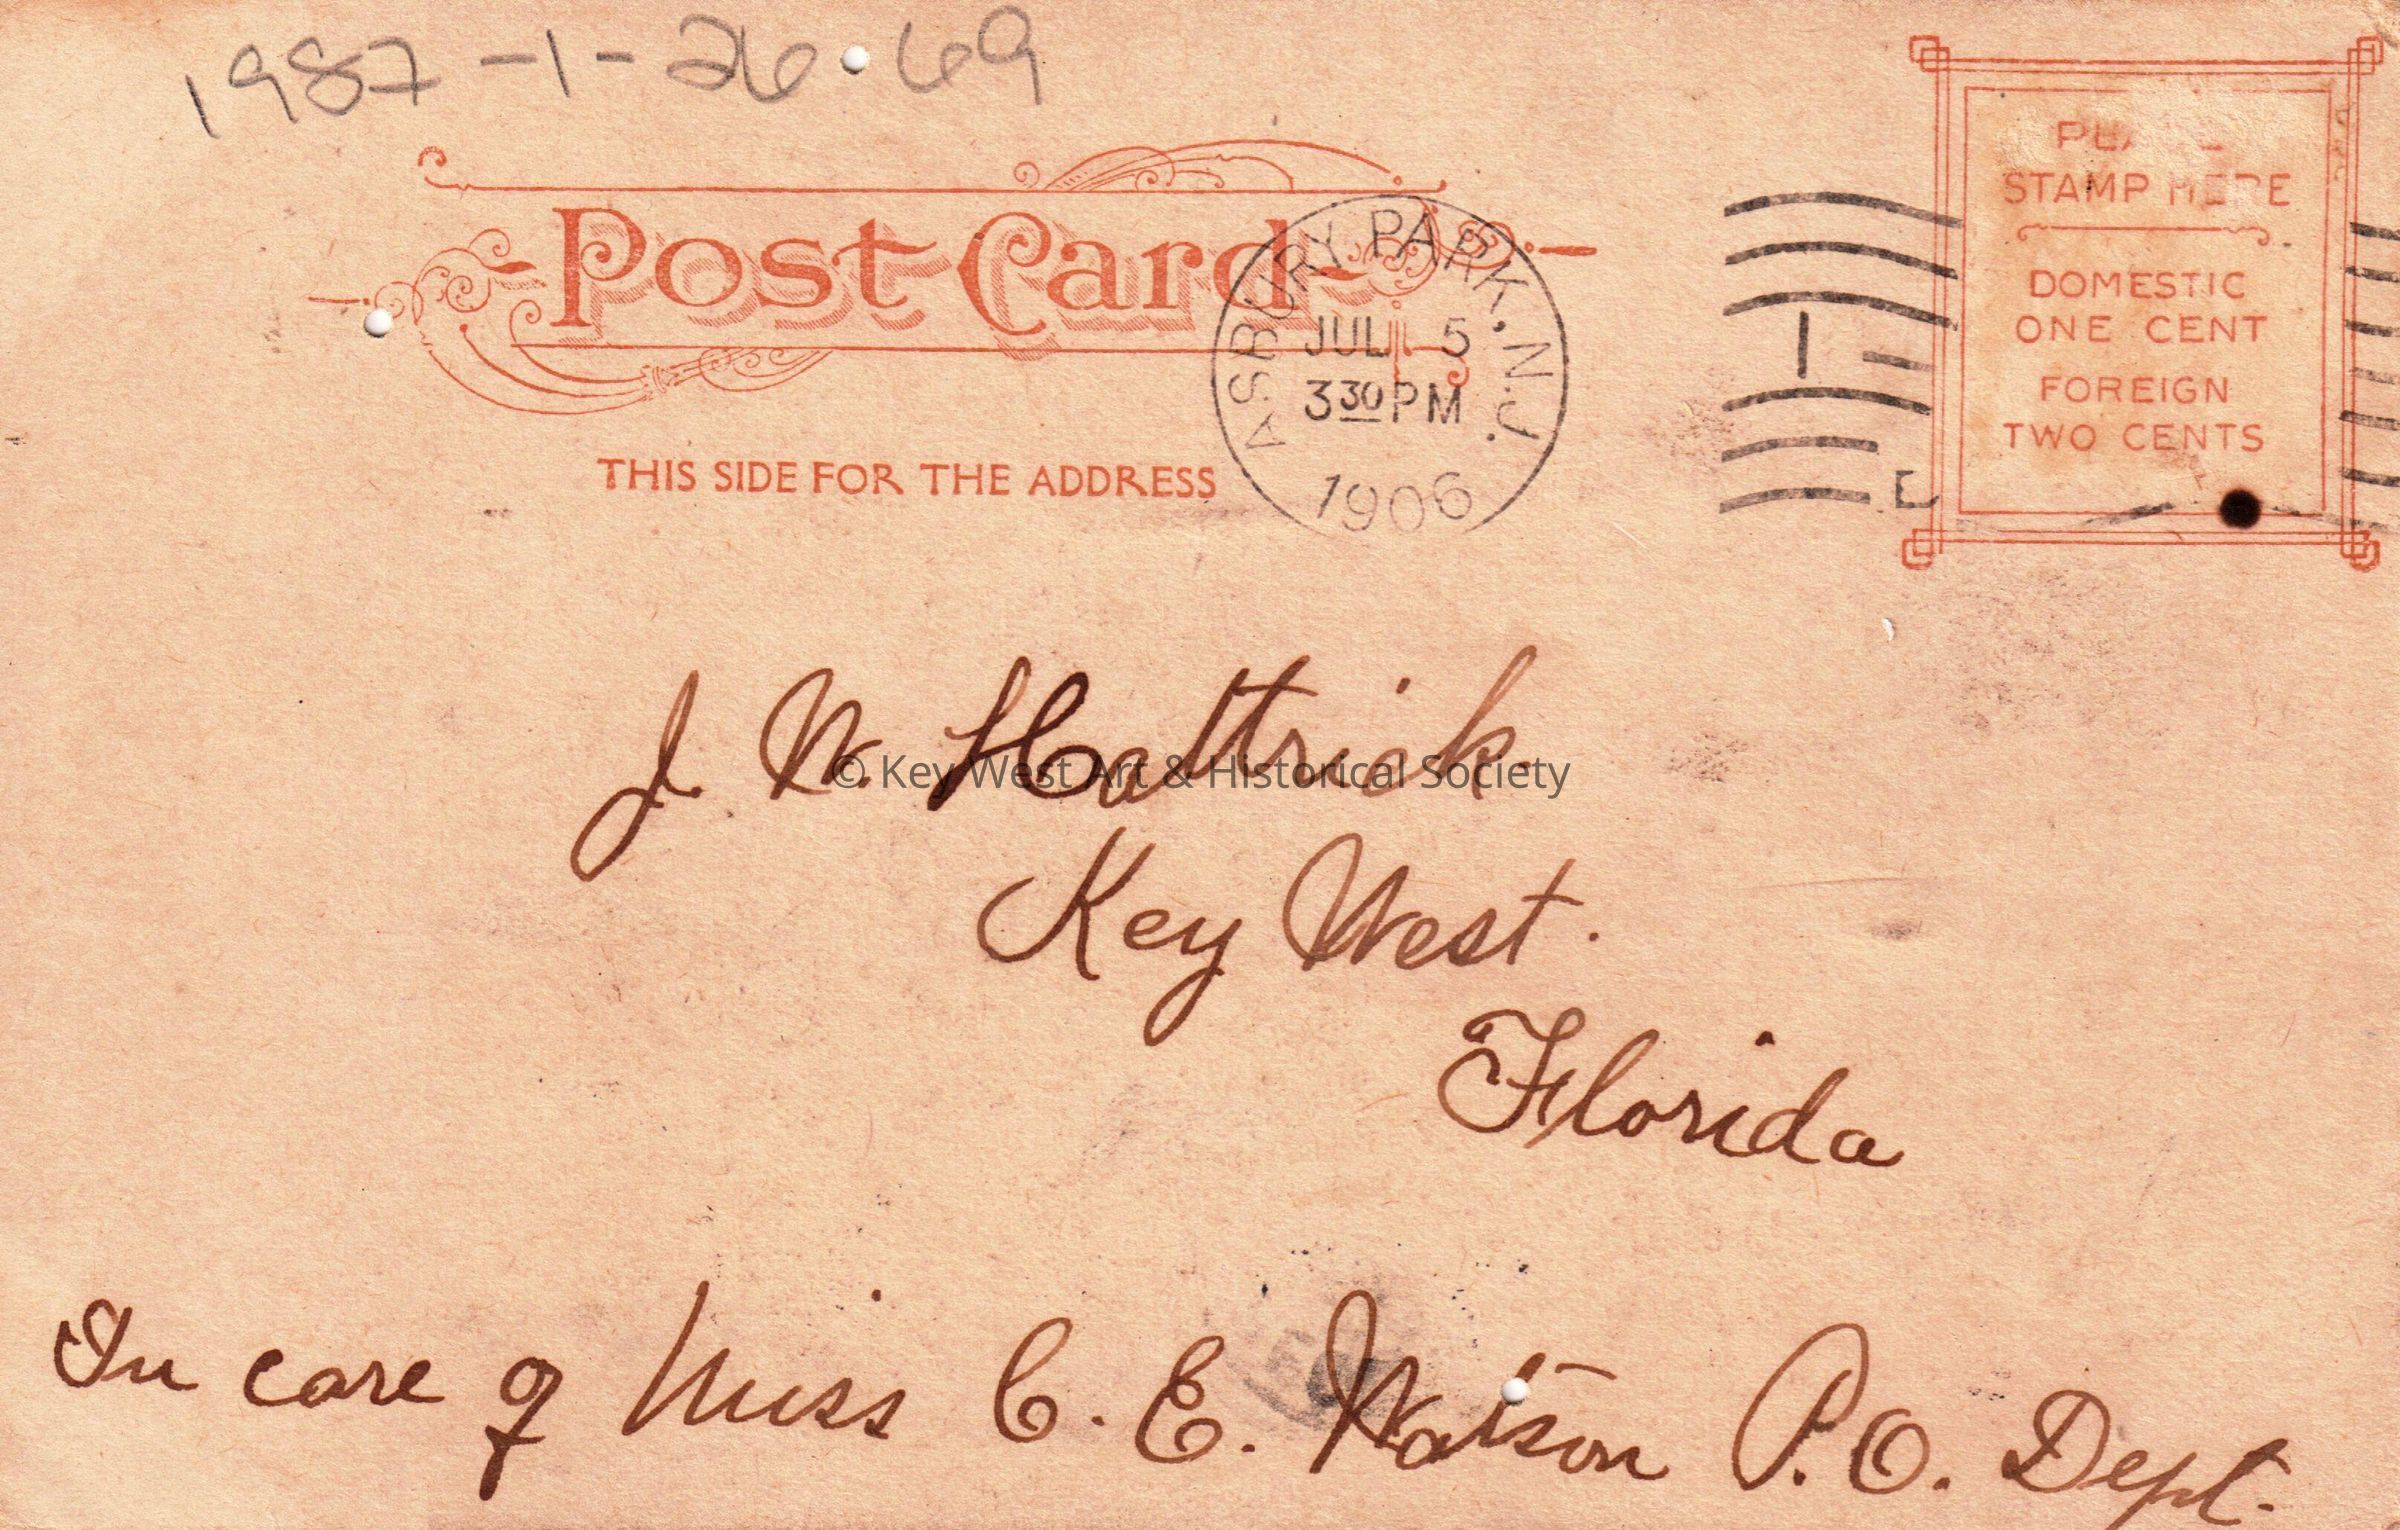 1987-1-26.69
Post Card
THIS SIDE FOR THE ADDRESS
ASBURY PARK, N.J.
JUL 5
3 30 PM
1906
1
STAMP HERE
DOMESTIC
ONE CENT
FOREIGN
TWO CENTS
J. W. Hattrick
© Key West Art & Historical Society
Key West.
Florida
In care of Miss C. E. Watson P.O. Dept.